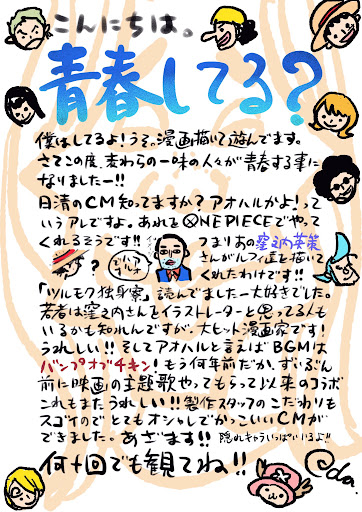 こんにちは。
青春してる?
僕はしてるよ!うそ。漫画描いて遊んでます。
さてこの度、麦わらの一味の人々が青春する事に
なりましたー!!
日清のCM知ってますか?アオハルかよ!って
いうアレですよ。あれをONE PIECEでやって
くれるそうです!!
つまりあの窪之内英策
さんがルフィ達を描いて
くれたわけです!!
?
「ツルモク独身寮」読んでましたー大好きでした。
若者は窪之内さんをイラストレーターと思ってる人も
いるかも知れんですが、大ヒット漫画家です!
うれしいい!!そしてアオハルと言えばBGMは
バンプオブチキン!もう何年前だか、ずいぶん
前に映画の主題歌やってもらって以来のコラボ
これもまたうれしいい!!製作スタッフのこだわりも
スゴイのでとてもオシャレでかっこいいCMが
できました。あざます!!隠れキャラいっぱいいるよ!!
何十回でも観てね!!
Oda.